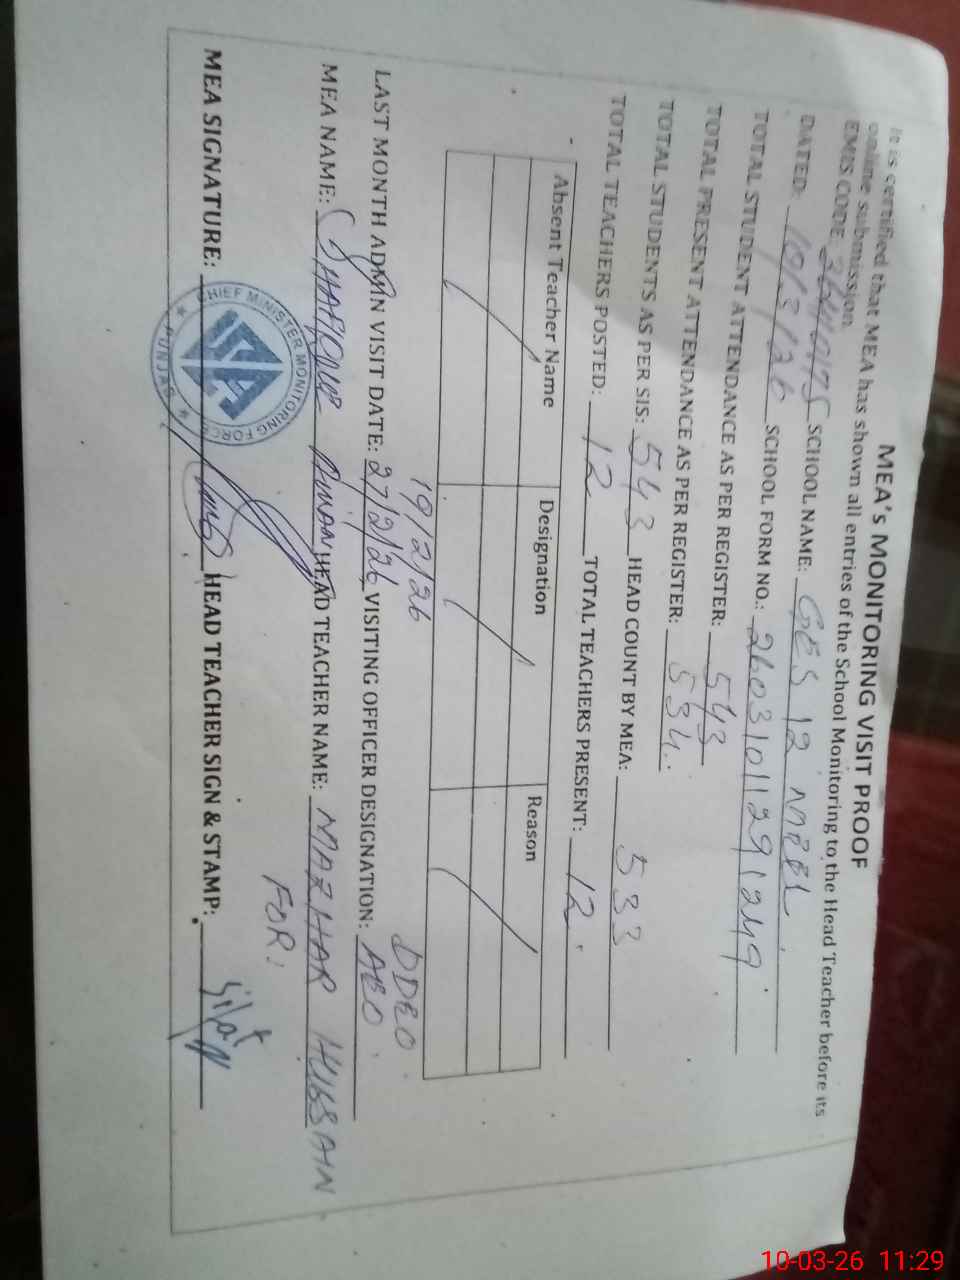 MEA's MONITORING VISIT PROOF
It is certified that MEA has shown all entries of the School Monitoring to the Head Teacher before its
online submission.
EMIS CODE: SCHOOL NAME: GES 12 MPBL
DATED: 10/3/26 SCHOOL FORM NO.: 26031011291249
TOTAL STUDENT ATTENDANCE AS PER REGISTER: 543
TOTAL PRESENT ATTENDANCE AS PER REGISTER: 534
TOTAL STUDENTS AS PER SIS: 543 HEAD COUNT BY MEA: 533
TOTAL TEACHERS POSTED: 12 TOTAL TEACHERS PRESENT: 12
Absent Teacher Name Designation Reason
19/2/26 DDEO
LAST MONTH ADMIN VISIT DATE: 27/2/26 VISITING OFFICER DESIGNATION: AEO
MEA NAME: SHAFIQUE HEAD TEACHER NAME: MAZHAR HUSSAIN
FOR:
MEA SIGNATURE: HEAD TEACHER SIGN & STAMP:
CHIEF MINISTER MONITORING FORCE
PUNJAB
10-03-26 11:29